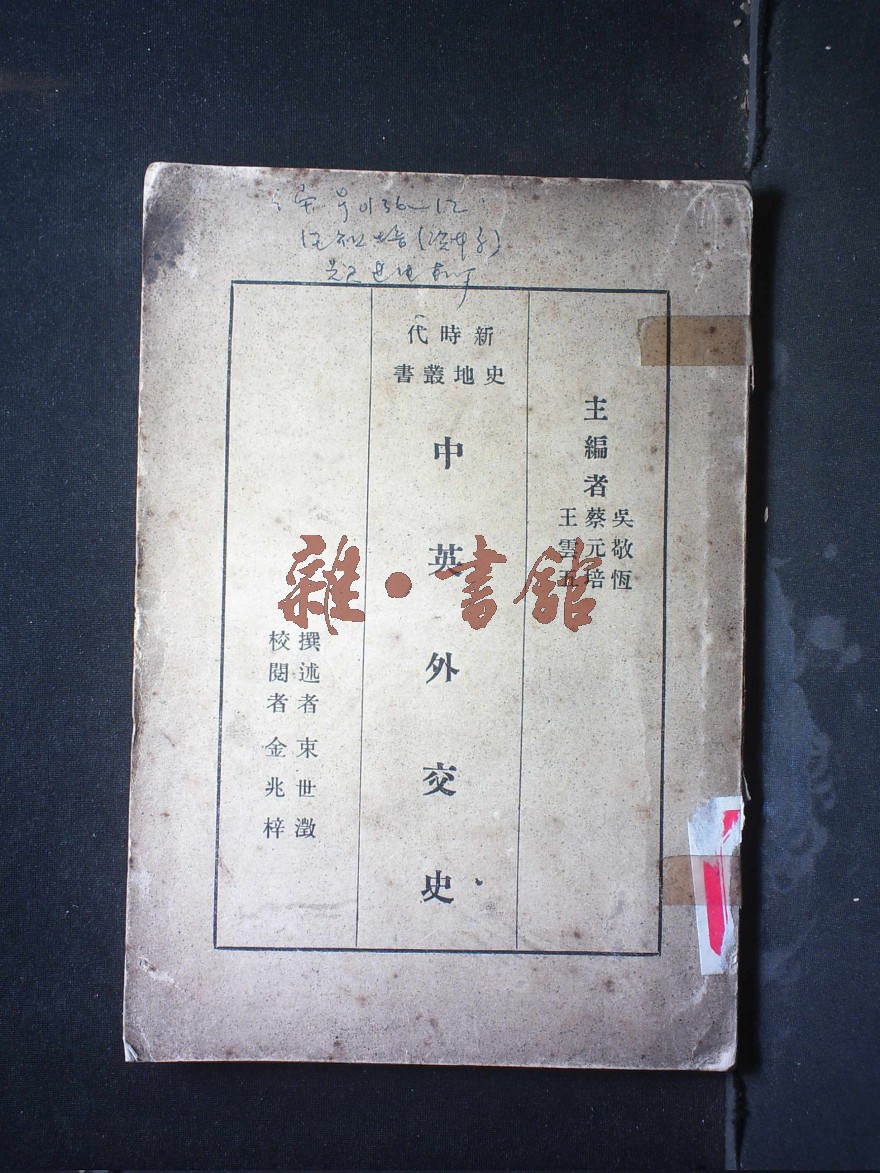 新時代
史地叢書
主編者
吳敬恆
蔡元培
王雲五
中英外交史
撰述者 束世澂
校閱者 金兆梓
雜·書館